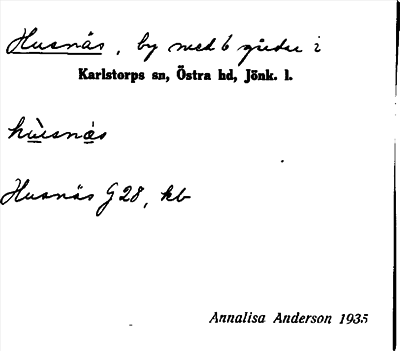 Husnäs, by med 6 gårdar i
Karlstorps sn, Östra hd, Jönk. l.
hùsnäs
Husnäs G 28, kb
Annalisa Anderson 1935